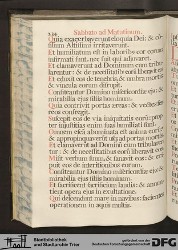 Sabbato ad Matutinum.
Quia exacerbaverunt eloquia Dei: & con-
silium Altissimi irritaverunt.
Et humiliatum est in laboribus cor eorum:
infirmati sunt, nec fuit qui adjuvaret.
Et clamaverunt ad Dominum cum tribu-
larentur: & de necessitatibus eorum liberavit eos.
Et eduxit eos de tenebris, &
& vincula eorum disrupit.
Confiteantur Domino misericordiae ejus: &
mirabilia ejus filiis hominum.
Quia contrivit portas aereas: & vectes fer-
reos confregit.
Suscepit eos de via iniquitatis eorum: prop-
ter injustitias enim suas humiliati sunt.
Omnem escam abominata est anima eorum:
& appropinquaverunt usque ad portas mortis.
Et clamaverunt ad Dominum cum tribularen-
tur: & de necessitatibus eorum liberavit eos.
Misit verbum suum, & sanavit eos: & eri-
puit eos de interitionibus eorum.
Confiteantur Domino misericordiae ejus: &
mirabilia ejus filiis hominum.
Et sacrificent sacrificium laudis: & annun-
tient opera ejus in exultatione.
Qui descendunt mare in navibus: facientes
operationem in aquis multis.
Stadtbibliothek
und Stadtarchiv Trier
gefördert von der
Deutschen Forschungsgemeinschaft
DFG